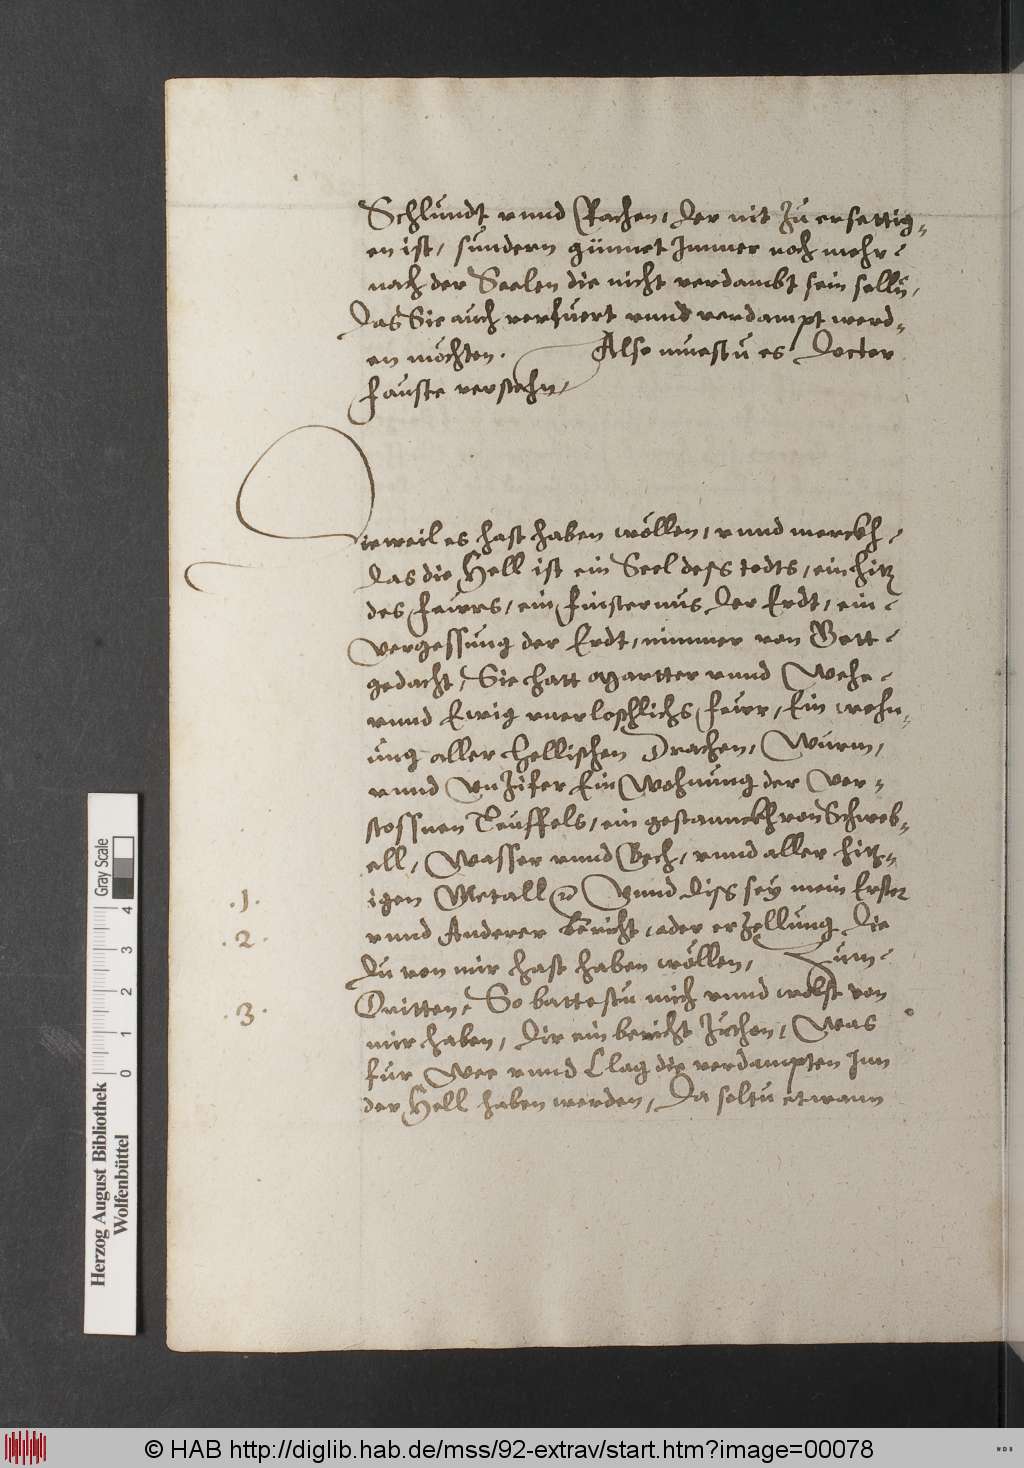 Schlundt vnnd Rachen, der nit zu ersettig-
en ist, sundern günnet Immer noch mehr
nach der Seelen die nicht verdambt sein solln,
Das Sie auch verfuert vnnd verdampt werd-
en möchten. Also muestu es Doctor
Fauste verstehn,
Dieweil es hast haben wöllen, vnnd merckh
Das die Hell ist ein Seel dess todts, ein hitz
des Feurs, ein Finsternus der Erdt, ein
vergessung der Erdt, nimmer von Gott
gedacht, Sie hatt Martter vnnd Wehe
vnnd Ewig vnerloschlichs Feur, Ein wohn-
ung aller hellischen Drachen, Wurm,
vnnd Vnzifer Ein Wohnung der Ver-
stossnen Teuffels, ein gestannckh von Schweb-
ell, Wasser vnnd Bech, vnnd aller hitz-
.1. igen Metall Vnnd diss sey mein Erster
.2. vnnd Anderer bericht, oder erzellung Die
Du von mir hast haben wöllen, Zum
.3. Dritten, So battestu mich vnnd wolst von
mir haben, Dir ein bericht zuthon, Was
fur Wee vnnd Clag die verdampten Inn
der Hell haben werden, Da soltu etwann
Herzog August Bibliothek
Wolfenbüttel
0 1 2 3 4
Gray Scale
© HAB http://diglib.hab.de/mss/92-extrav/start.htm?image=00078